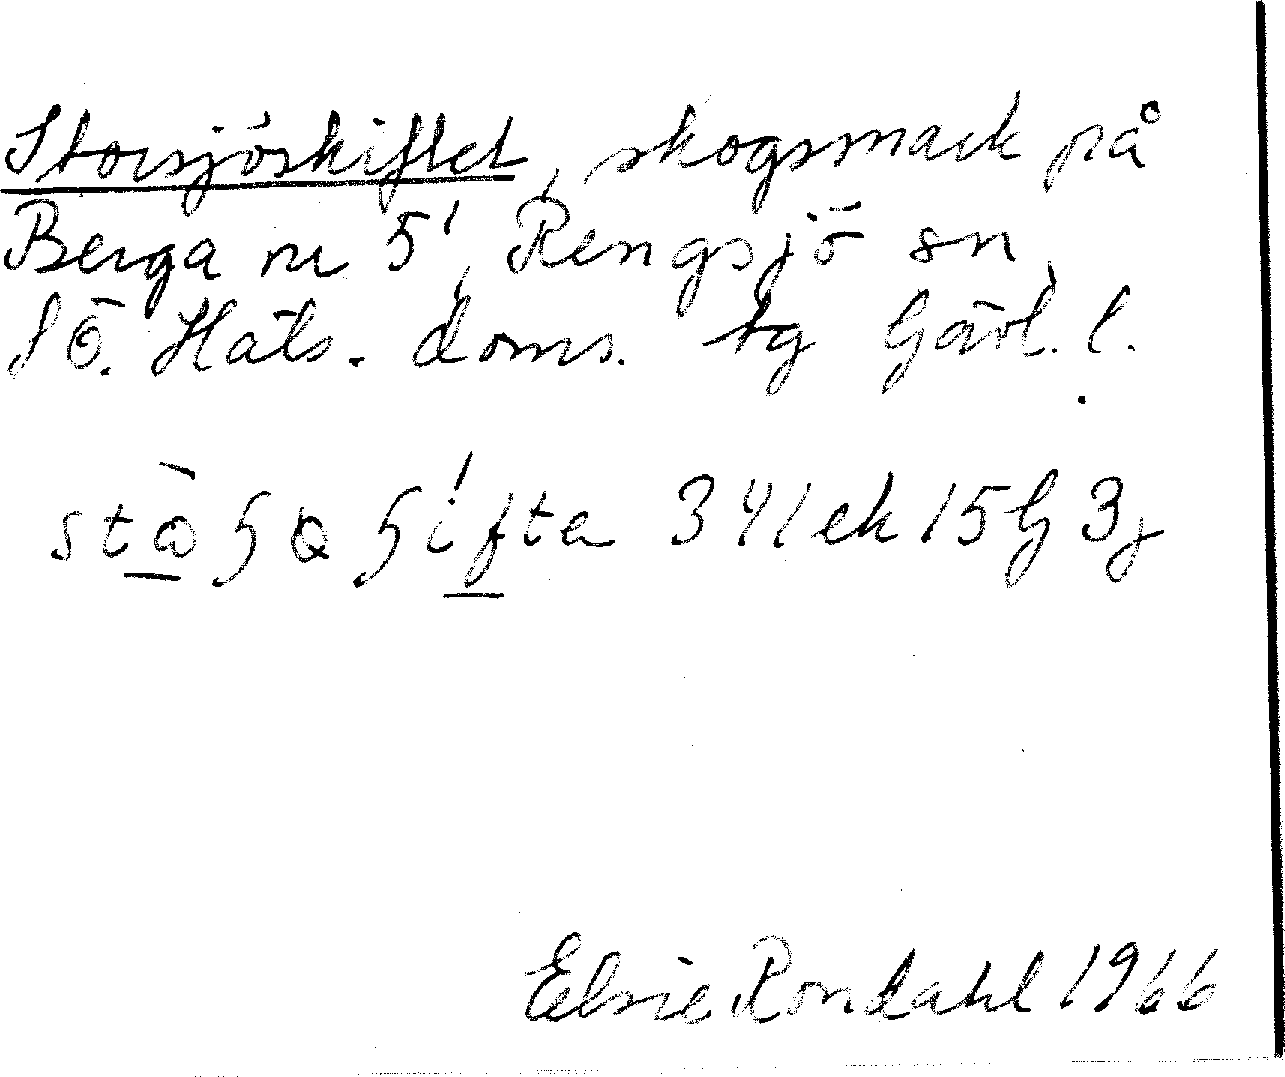 Storsjöskiftet, skogsmark på
Berga nr 5¹, Rengsjö sn,
SÖ. Häls. doms. tg Gävl. l.
341 ek 15 G 3 j
Elsie Rondahl 1966